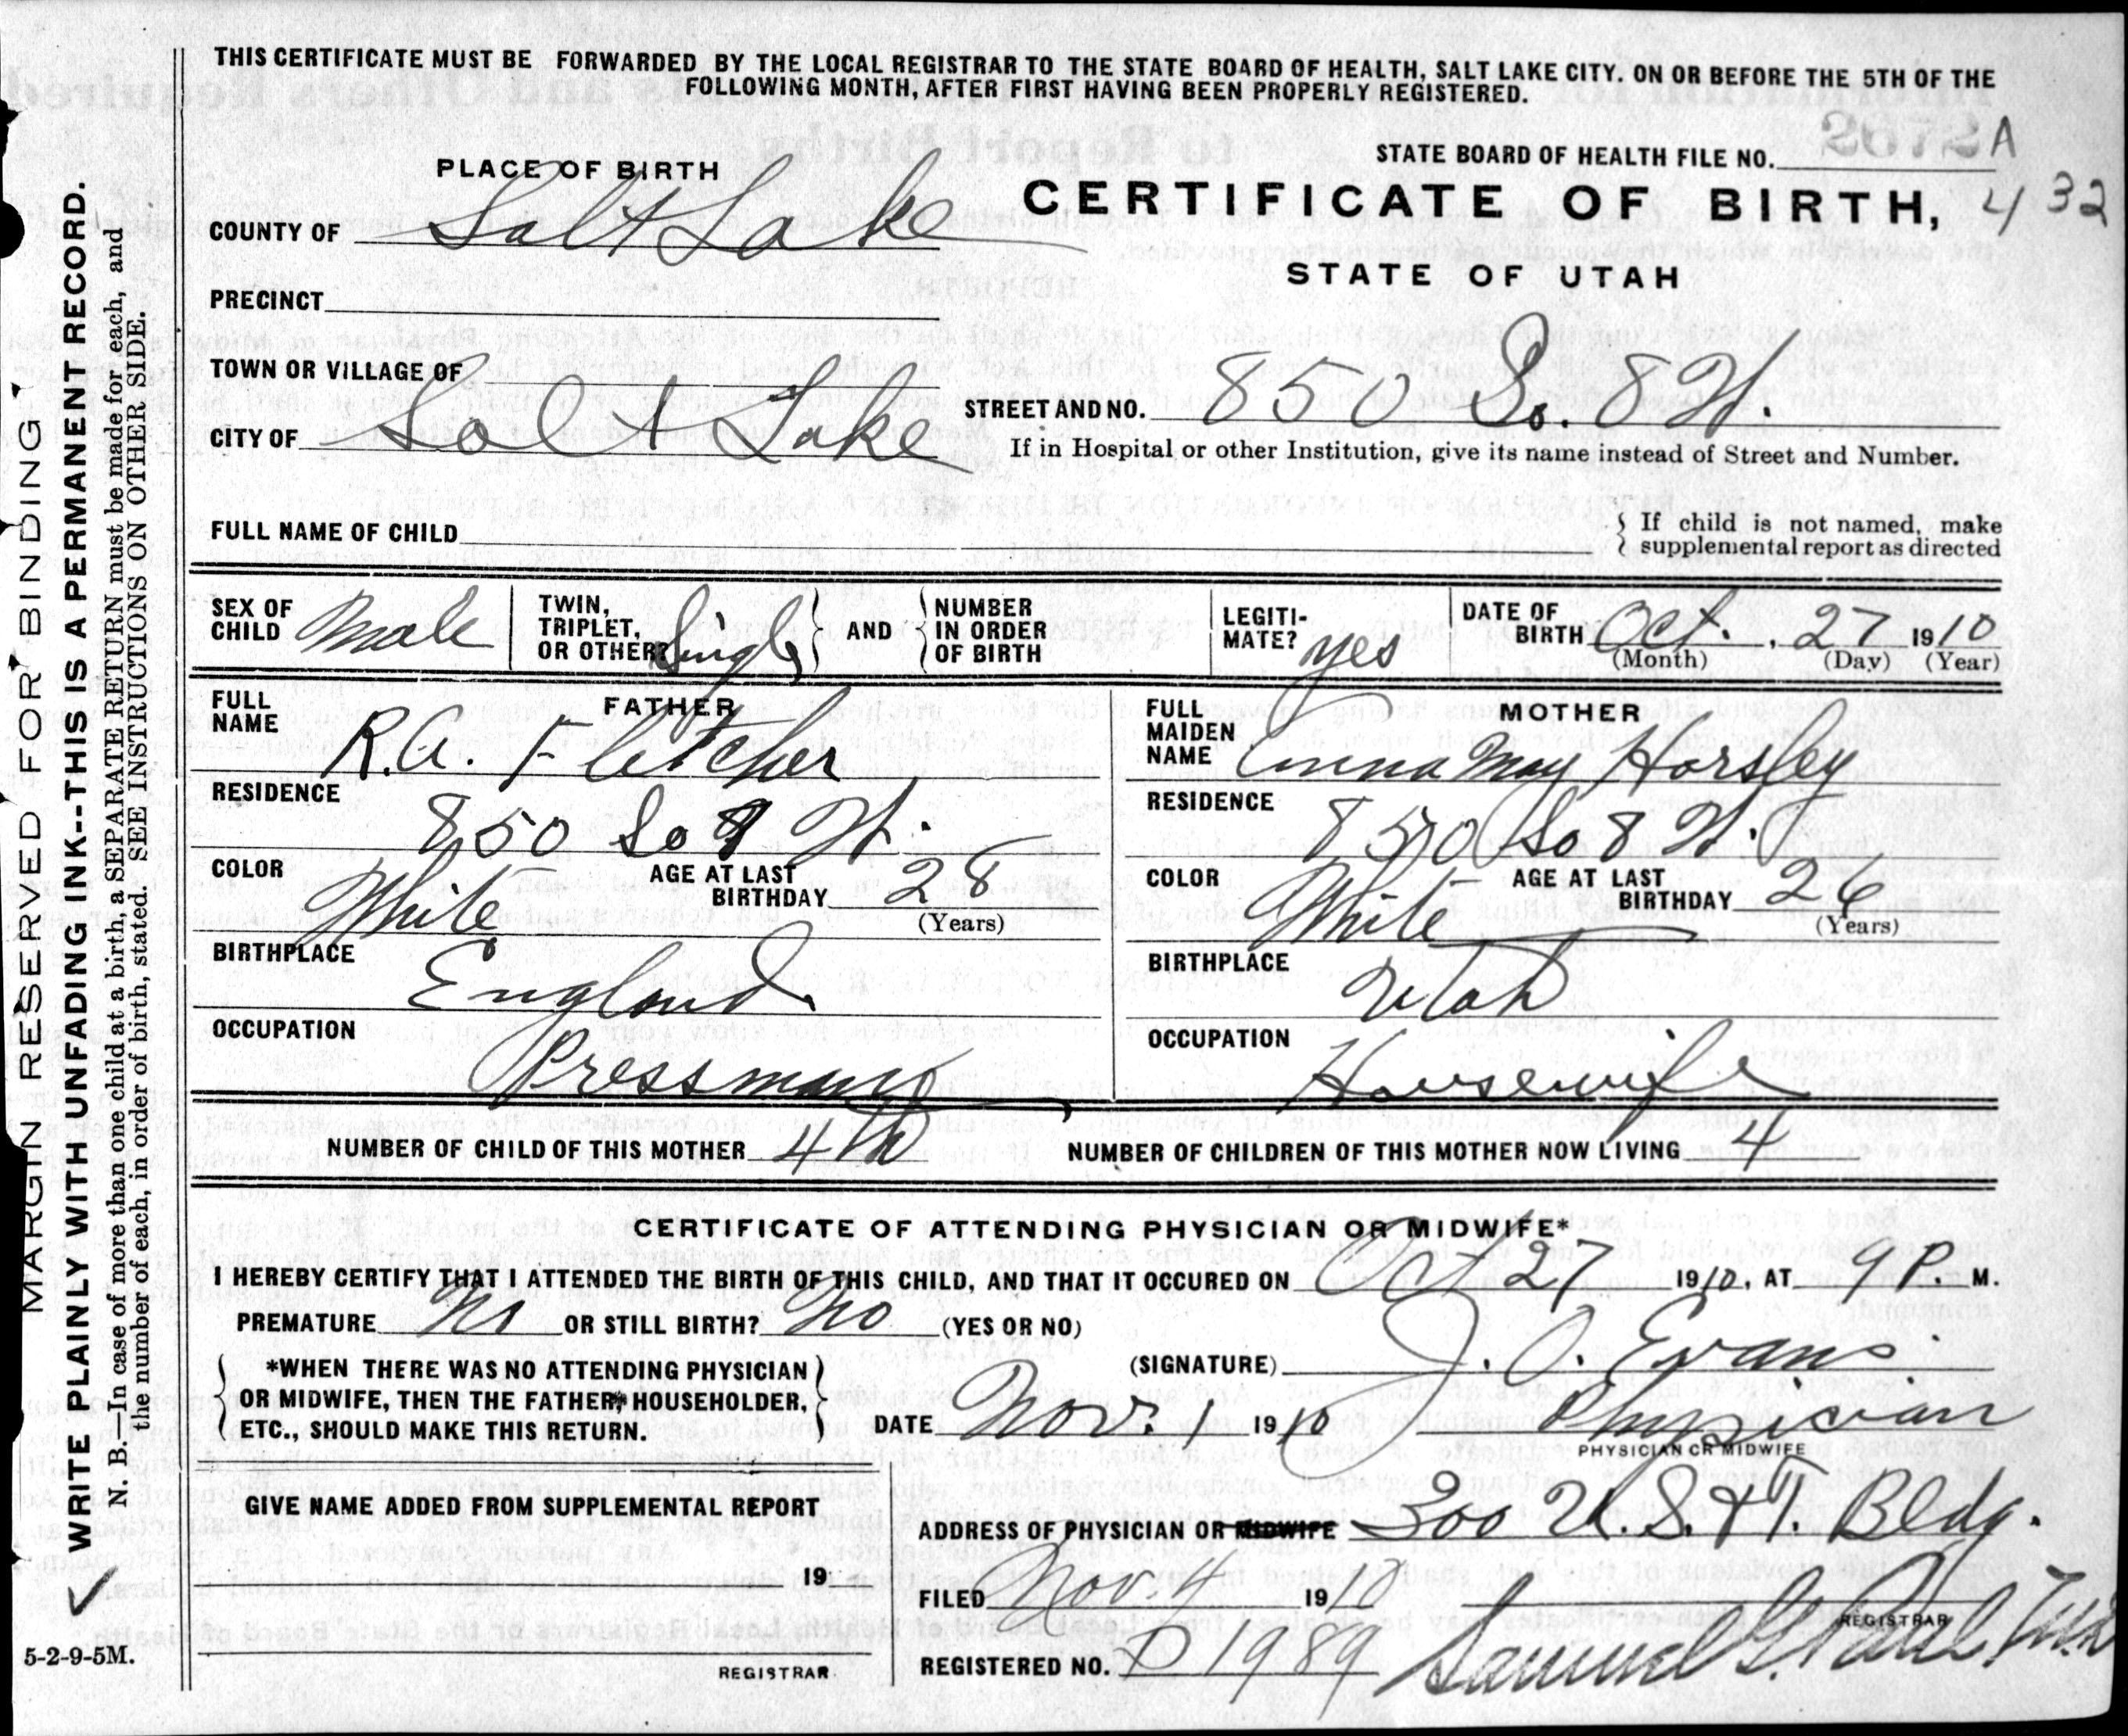 THIS CERTIFICATE MUST BE FORWARDED BY THE LOCAL REGISTRAR TO THE STATE BOARD OF HEALTH, SALT LAKE CITY. ON OR BEFORE THE 5TH OF THE
FOLLOWING MONTH, AFTER FIRST HAVING BEEN PROPERLY REGISTERED.
MARGIN RESERVED FOR BINDING
WRITE PLAINLY WITH UNFADING INK--THIS IS A PERMANENT RECORD.
N. B.—In case of more than one child at a birth, a SEPARATE RETURN must be made for each, and
the number of each, in order of birth, stated. SEE INSTRUCTIONS ON OTHER SIDE.
5-2-9-5M.
PLACE OF BIRTH
STATE BOARD OF HEALTH FILE NO. A
432
CERTIFICATE OF BIRTH,
STATE OF UTAH
COUNTY OF Salt Lake
PRECINCT
TOWN OR VILLAGE OF
CITY OF Salt Lake
STREET AND NO. 850 So. 8 W.
If in Hospital or other Institution, give its name instead of Street and Number.
FULL NAME OF CHILD
If child is not named, make
supplemental report as directed
SEX OF CHILD Male
TWIN, TRIPLET, OR OTHER? Single
AND
NUMBER IN ORDER OF BIRTH
LEGITI-MATE? yes
DATE OF BIRTH Oct., 27 1910
(Month) (Day) (Year)
FATHER
FULL NAME R.A. Fletcher
RESIDENCE 850 So 8 W.
COLOR White
AGE AT LAST BIRTHDAY 28
(Years)
BIRTHPLACE England
OCCUPATION Pressman
MOTHER
FULL MAIDEN NAME Anna May Horsley
RESIDENCE 850 So 8 W.
COLOR White
AGE AT LAST BIRTHDAY 26
(Years)
BIRTHPLACE Utah
OCCUPATION Housewife
NUMBER OF CHILD OF THIS MOTHER 4th
NUMBER OF CHILDREN OF THIS MOTHER NOW LIVING 4
CERTIFICATE OF ATTENDING PHYSICIAN OR MIDWIFE*
I HEREBY CERTIFY THAT I ATTENDED THE BIRTH OF THIS CHILD, AND THAT IT OCCURED ON Oct 27 1910, AT 9 P. M.
PREMATURE No OR STILL BIRTH? No (YES OR NO)
*WHEN THERE WAS NO ATTENDING PHYSICIAN
OR MIDWIFE, THEN THE FATHER, HOUSEHOLDER,
ETC., SHOULD MAKE THIS RETURN.
(SIGNATURE) J. O. Evans
DATE Nov. 1 1910
Physician
PHYSICIAN OR MIDWIFE
GIVE NAME ADDED FROM SUPPLEMENTAL REPORT
19
REGISTRAR.
ADDRESS OF PHYSICIAN OR MIDWIFE 300 U.S. & T. Bldg.
FILED Nov. 4 1910
REGISTRAR
REGISTERED NO. D 1989
Samuel G. Paul